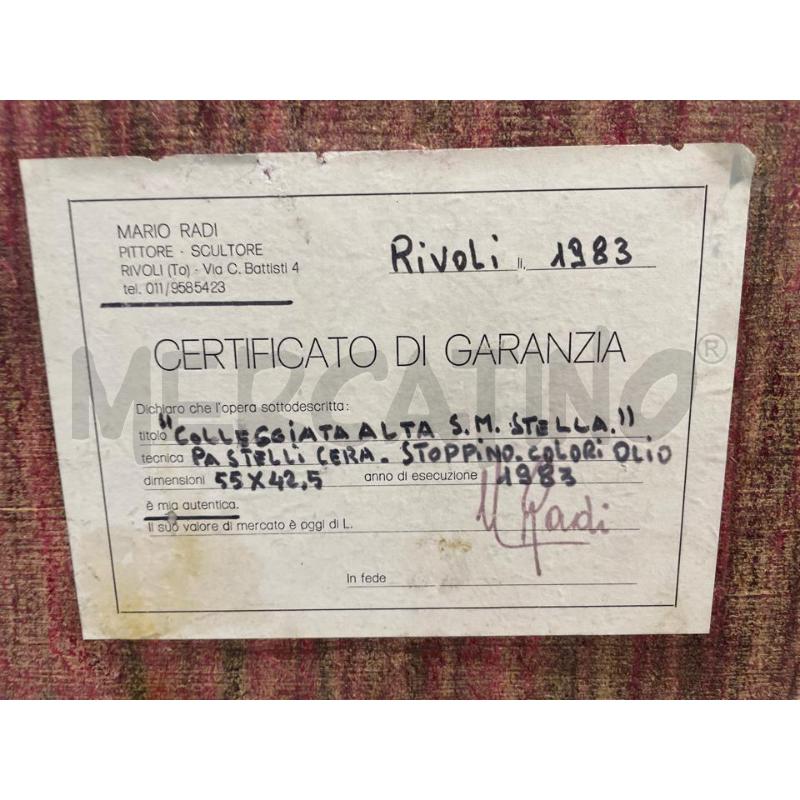 MARIO RADI
PITTORE - SCULTORE
RIVOLI (To) - Via C. Battisti 4
tel. 011/9585423
Rivoli li, 1983
CERTIFICATO DI GARANZIA
MERCATINO®
Dichiaro che l'opera sottodescritta:
titolo "COLLEGGIATA ALTA S.M. STELLA."
tecnica PASTELLI CERA. STOPPINO. COLORI OLIO
dimensioni 55X42,5 anno di esecuzione 1983
è mia autentica.
Il suo valore di mercato è oggi di L.
M Radi
In fede